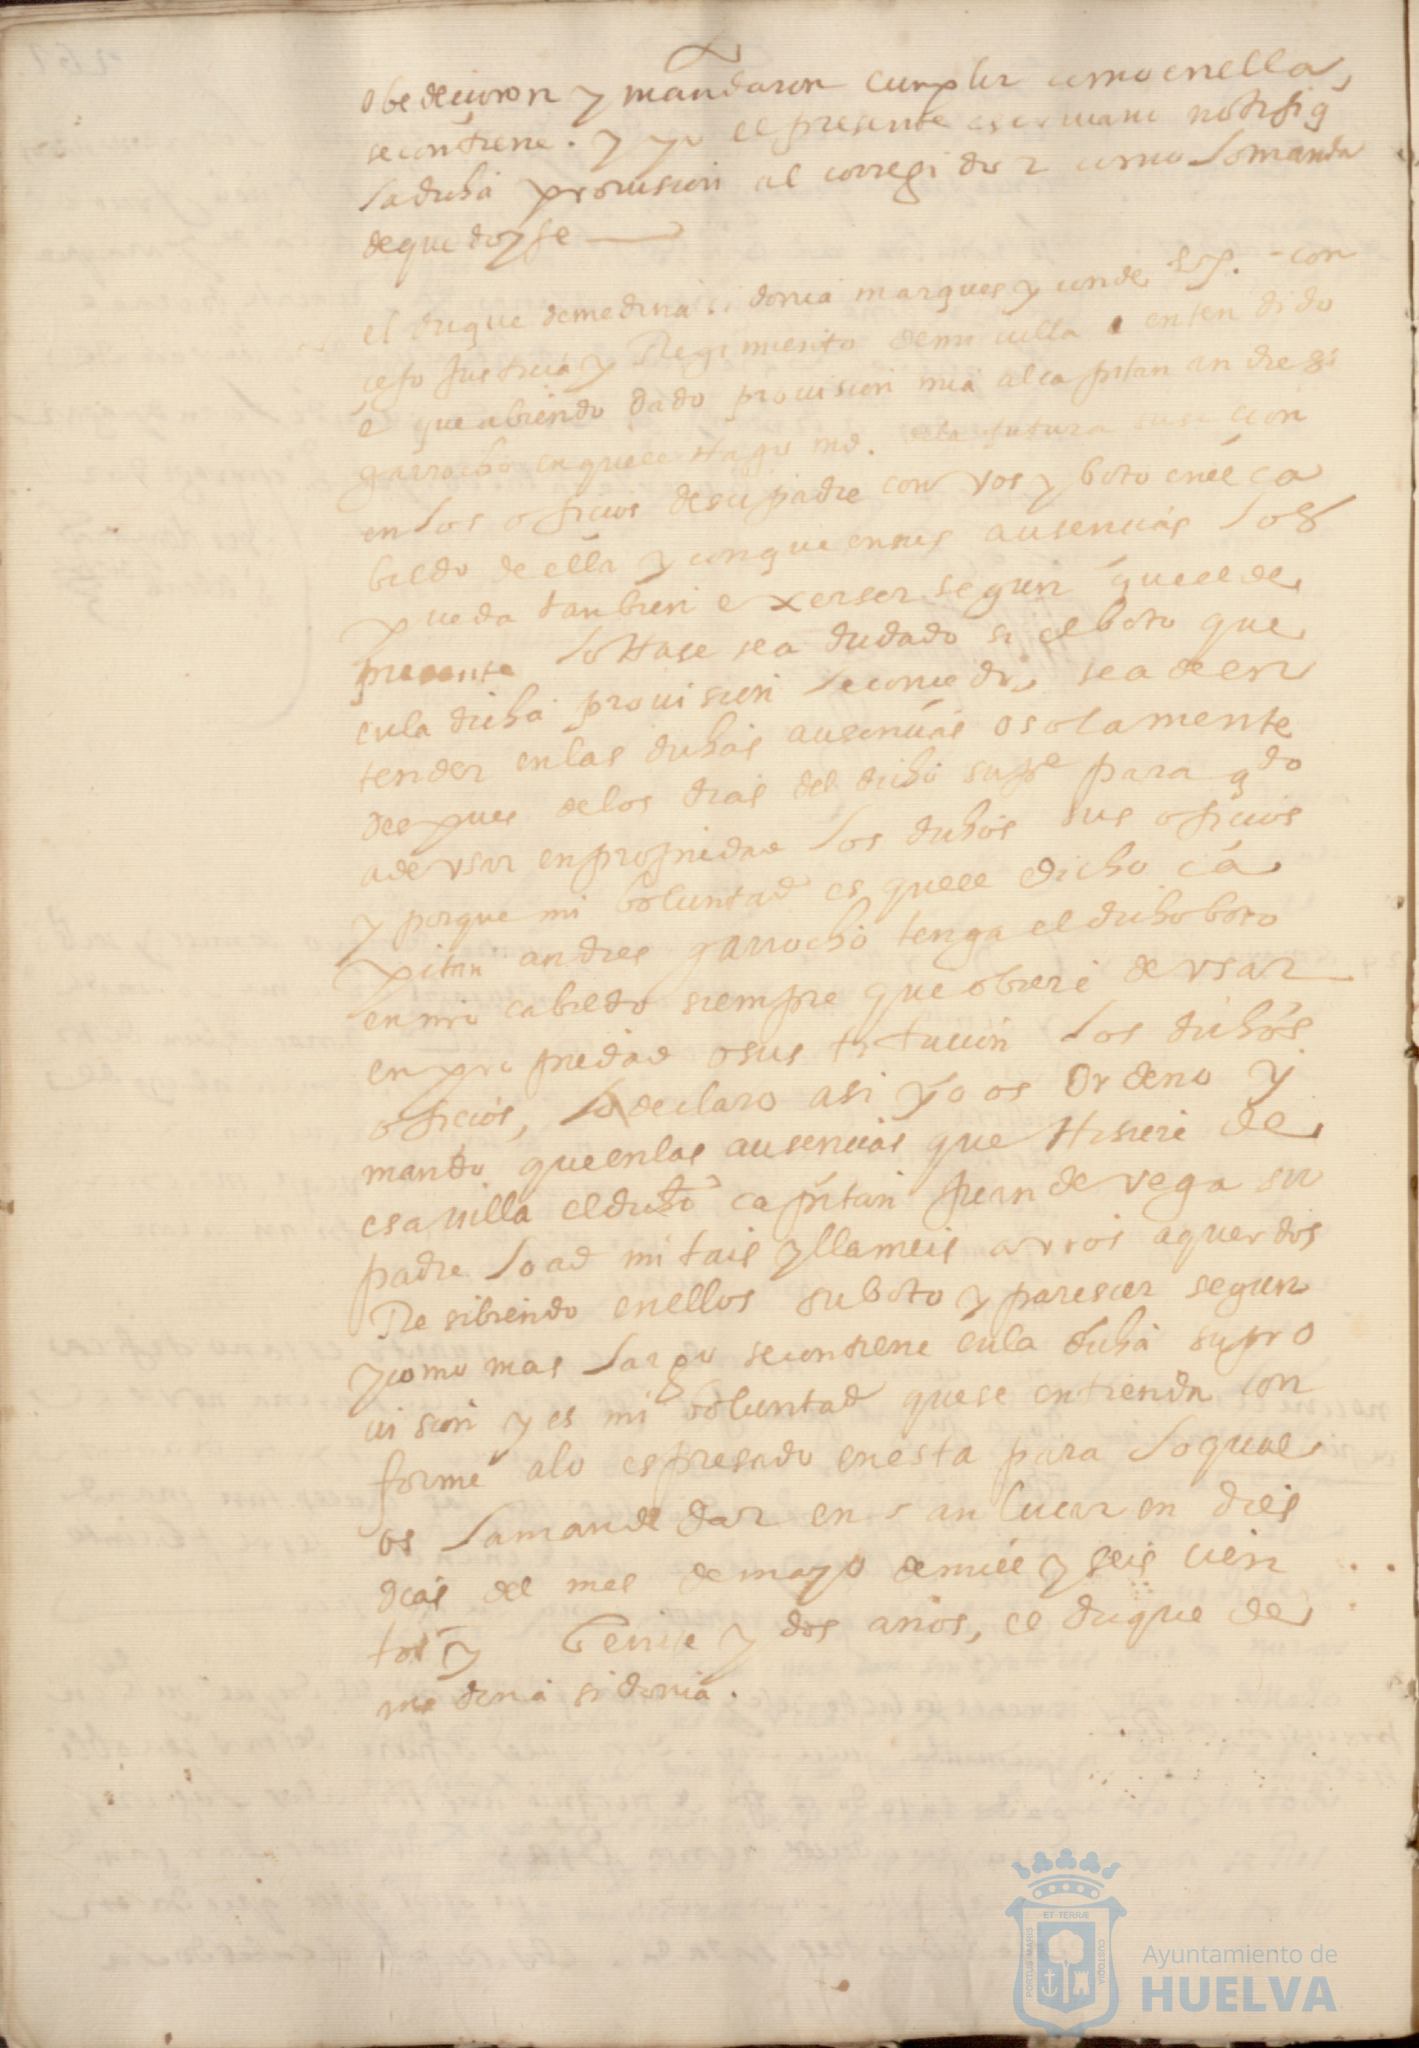 obedecieron y mandaron cumplir como en ella
se contiene. y yo el presente escrivano notifiq
la dicha provision al corregidor como lo manda
de que doy fe
el duque de medina sidonia marques y conde &. - con
cejo justicia y Regimiento de mi villa e entendido
e que abiendo dado provision mia al capitan andres
garrocho en que le hago md. de la futura susecion
en los oficios de su padre con vos y boto en el ca
bildo de ella y con que en sus ausencias los
pueda tanbien exerser segun que el de
presente lo Hase se a dudado si el boto que
en la dicha provision le concedo, se a de en
tender en las dichas ausencias o solamente
despues de los dias del dicho su pe para qdo
a de usar en propriedad los dichos sus oficios
y porque mi boluntad es que el dicho ca
pitan andres garrocho tenga el dicho boto
en mi cabildo siempre que obiere de usar
en propriedad o sustitucion los dichos
oficios, lo declaro asi y os ordeno y
mando que en las ausencias que Hisiere de
esa villa el dicho capitan juan de vega su
padre lo admitais y llameis a vros aquerdos
Resibiendo en ellos su boto y pareser segun
y como mas largo se contiene en la dicha su pro
vision y es mi boluntad que se entienda con
forme a lo espresado en esta para lo qual
os la mande dar en san lucar en dies
dias del mes de mayo de mill y seis cien
tos y beinte y dos años, el duque de
medina sidonia.
PORTUS MARIS
ET TERRÆ
CUSTODIA
Ayuntamiento de
HUELVA